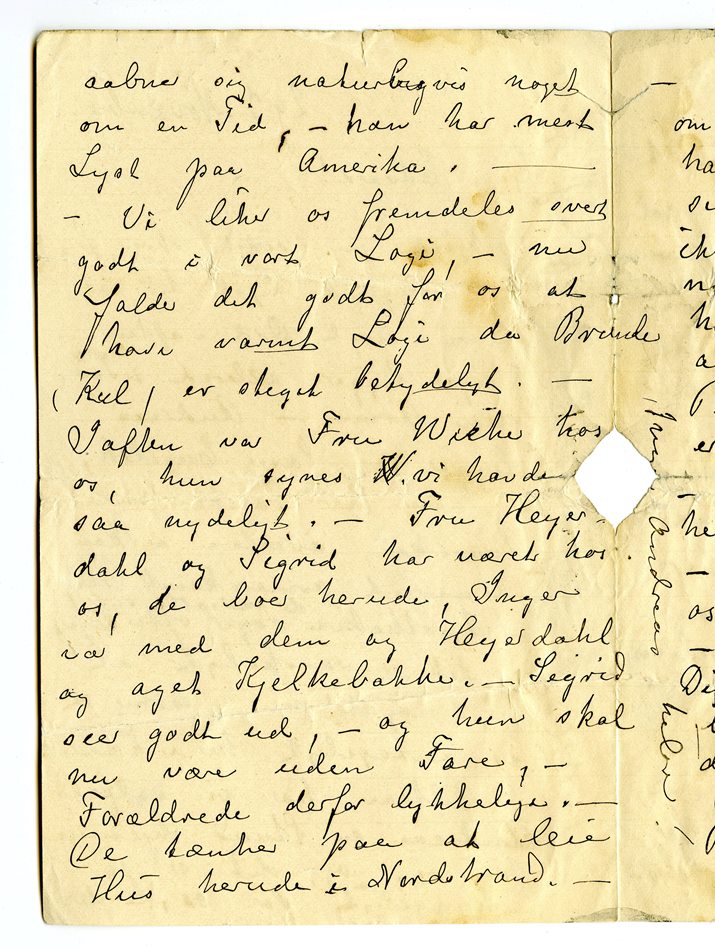 aabner sig naturligvis noget
om en Tid, – han har mest
Lyst paa Amerika. —
– Vi liker os fremdeles svert
godt i vort Logi, – nu
falde det godt for os at
have varmt Logi da Brænde
(Kul) er steget betydeligt. —
Iaften var Fru Wiche hos
os, hun synes vi havde
saa nydeligt. – Fru Heyer-
dahl og Sigrid har været hos
os, de boer herude, Inger
var med dem og Heyerdahl
og aget Kjelkebakke. – Sigrid
seer godt ud, – og hun skal
nu være uden Fare, –
Forældrede derfor lykkelige. —
De tænker paa at leie
Hus herude i Nordstrand. —
Andreas hilser!
–
om
ha
si
ik
h
a
er
he
os
Di
d